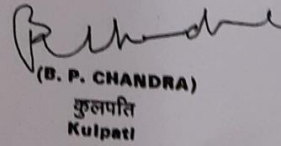 (B. P. CHANDRA)
कुलपति
Kulpati